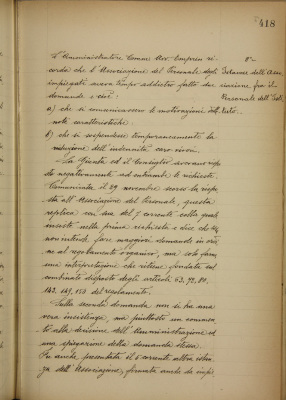 418
L'Amministratore Comm. Avv. Emporio ri-
corda che l'Associazione del Personale degli
impiegati aveva tempo addietro fatto due
domande e cioè:
a) che si comunicassero le motivazioni delle
note caratteristiche.
b) che si sospendesse temporaneamente la
riduzione dell'indennità caro viveri.
La Giunta ed il Consiglio avevano rispo-
sto negativamente ad entrambe le richieste.
Comunicata il 29 novembre scorso la rispo-
sta all'Associazione del Personale, questa
replica con sua del 7 corrente colla quale
insiste nella prima richiesta e dice che
non intende fare maggiori domande in ordi-
ne al regolamento organico, ma solo fare
una interpretazione che ritiene fondata sul
combinato disposto degli articoli 63, 92, 80,
142, 149, 158 del regolamento.
Sulla seconda domanda non si ha una
vera insistenza ma piuttosto un commen-
to alla decisione dell'Amministrazione ed
una spiegazione della domanda stessa.
Fu anche presentata il 6 corrente altra istan-
za dell'Associazione, firmata anche da
8°-
Istanze dell'Asso-
ciazione fra il
Personale dell'